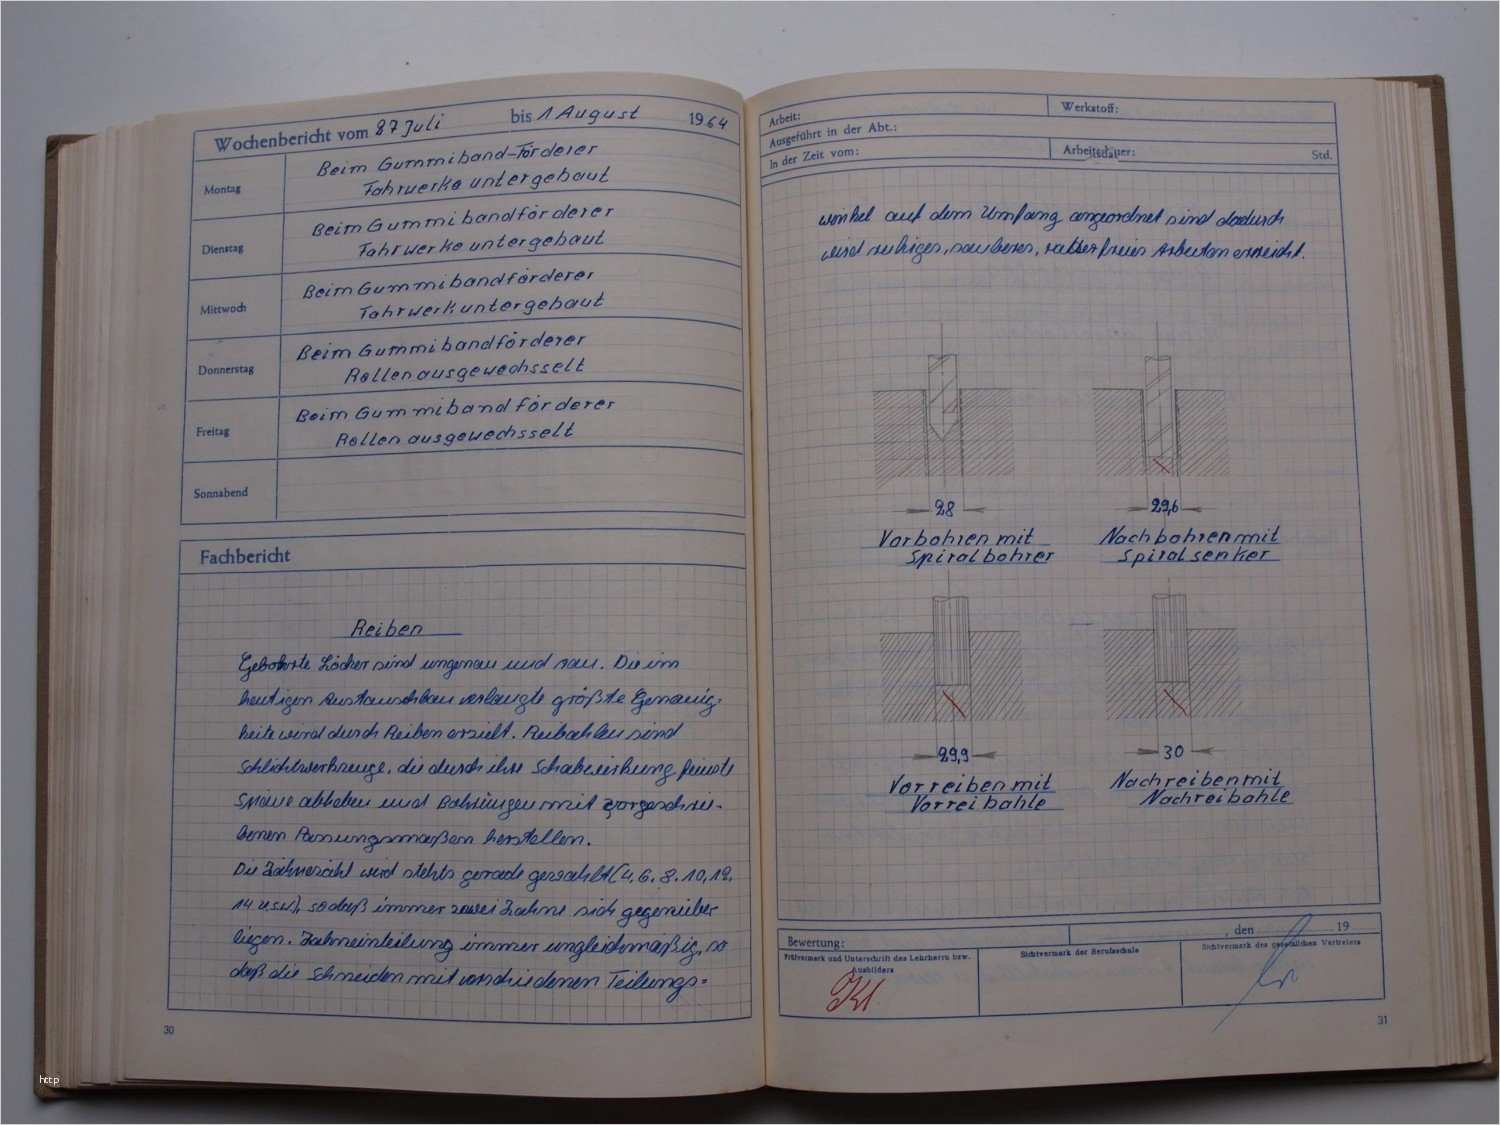 Wochenbericht vom 27 Juli bis 1 August 1964
Montag
Beim Gummiband-Förderer
Fahrwerke untergebaut
Dienstag
Beim Gummibandförderer
Fahrwerke untergebaut
Mittwoch
Beim Gummibandförderer
Fahrwerk untergebaut
Donnerstag
Beim Gummibandförderer
Rollen ausgewechsselt
Freitag
Beim Gummibandförderer
Rollen ausgewechsselt
Sonnabend
Fachbericht
Reiben
Gebohrte Löcher sind ungenau und rau. Die im
heutigen Austauschbau verlangte größte Genauig-
keite wird durch Reiben erzielt. Reibahlen sind
Schlichtwerkzeuge, die durch ihre Schabwirkung feinste
Späne abheben und Bohrungen mit vorgeschrie-
benen Passungsmaßen herstellen.
Die Zähnezahl wird stehts gerade gewählt (4, 6, 8, 10, 12,
14 usw), so daß immer zwei Zähne sich gegenüber
liegen. Zahneinteilung immer ungleichmäßig, so
daß die Schneiden mit verschiedenen Teilungs=
30
Arbeit:
Werkstoff:
Ausgeführt in der Abt.:
In der Zeit vom:
Arbeitsdauer:
Std.
winkel auf dem Umfang angeordnet sind dadurch
wird ruhiges, sauberes, ratterfreies Arbeiten erreicht.
28
29,6
Vorbohren mit
Spiralbohrer
Nachbohren mit
Spiralsenker
29,9
30
Vorreiben mit
Vorreibahle
Nachreiben mit
Nachreibahle
Bewertung:
, den 19
Prüfvermerk und Unterschrift des Lehrherrn bzw.
Ausbilders
Sichtvermerk der Berufsschule
Sichtvermerk des gesetzlichen Vertreters
31
http